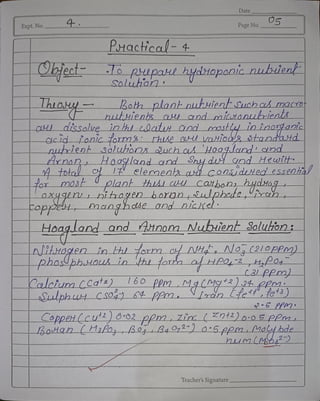 Date
Expt. No. 4.
Page No. 05
Practical - 4
Object - To prepare hydroponic nutrient
solution.
Theory - Both plant nutrient such as macro-
nutrients are and micronutrients
are dissolve in the water and mostly in inorganic
acid ionic forms. These are various standard
nutrient solutions such as 'Hoagland' and
Arnon, Hoagland and Snyder and Hewitt.
A total of 17 elements are considered essential
for most plant thus are carbon, hydrog,
oxygeru, nitrogen boran, sulphate, iran,
copper, manghase and nickel.
Hoagland and Arnom Nutrient Solution:
Nitrogen in the form of NH4+ NO3- (210 ppm)
phosphrous in the form of HPO4-2, H2PO4-
(31 ppm)
Calcium (Ca+2) 160 ppm, Mg (Mg+2) 34 ppm.
Sulphur (SO4) 64 ppm. Iran (Fe+1, Fe+2)
2.5 ppm.
Copper (Cu+2) 0.02 ppm, Zinc (Zn+2) 0.05 ppm,
Boran (H3PO3, BO3-, B4O7 2-) 0.5 ppm, Molybde
num
Teacher's Signature